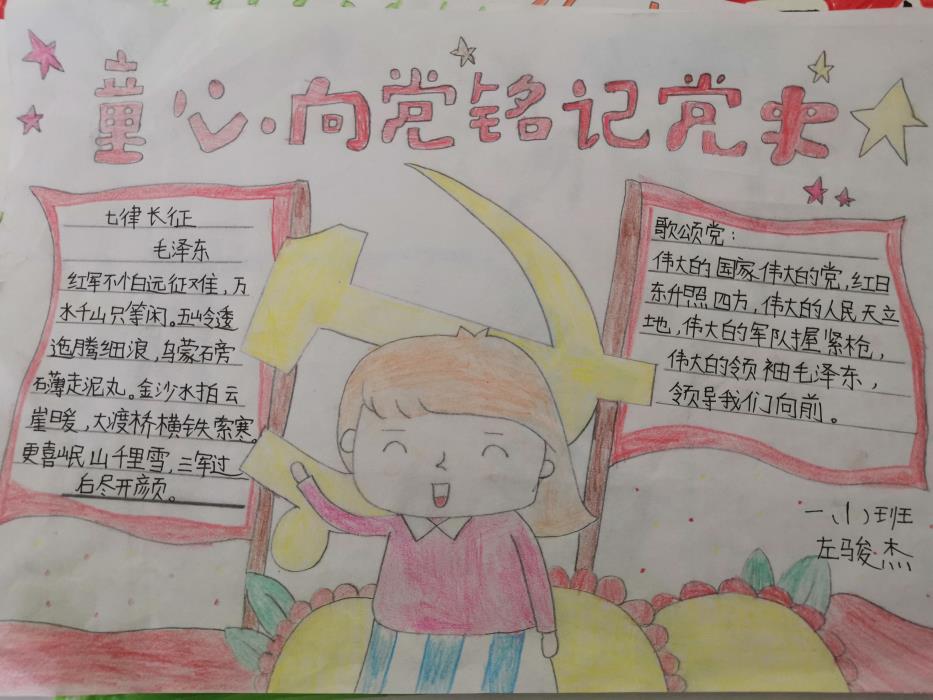 童心·向党铭记党史
七律长征
毛泽东
红军不怕远征难，万
水千山只等闲。五岭逶
迤腾细浪，乌蒙磅
礴走泥丸。金沙水拍云
崖暖，大渡桥横铁索寒。
更喜岷山千里雪，三军过
后尽开颜。
歌颂党：
伟大的国家伟大的党，红日
东升照四方，伟大的人民天立
地，伟大的军队握紧枪，
伟大的领袖毛泽东，
领导我们向前。
一、(八)班
左马骏杰